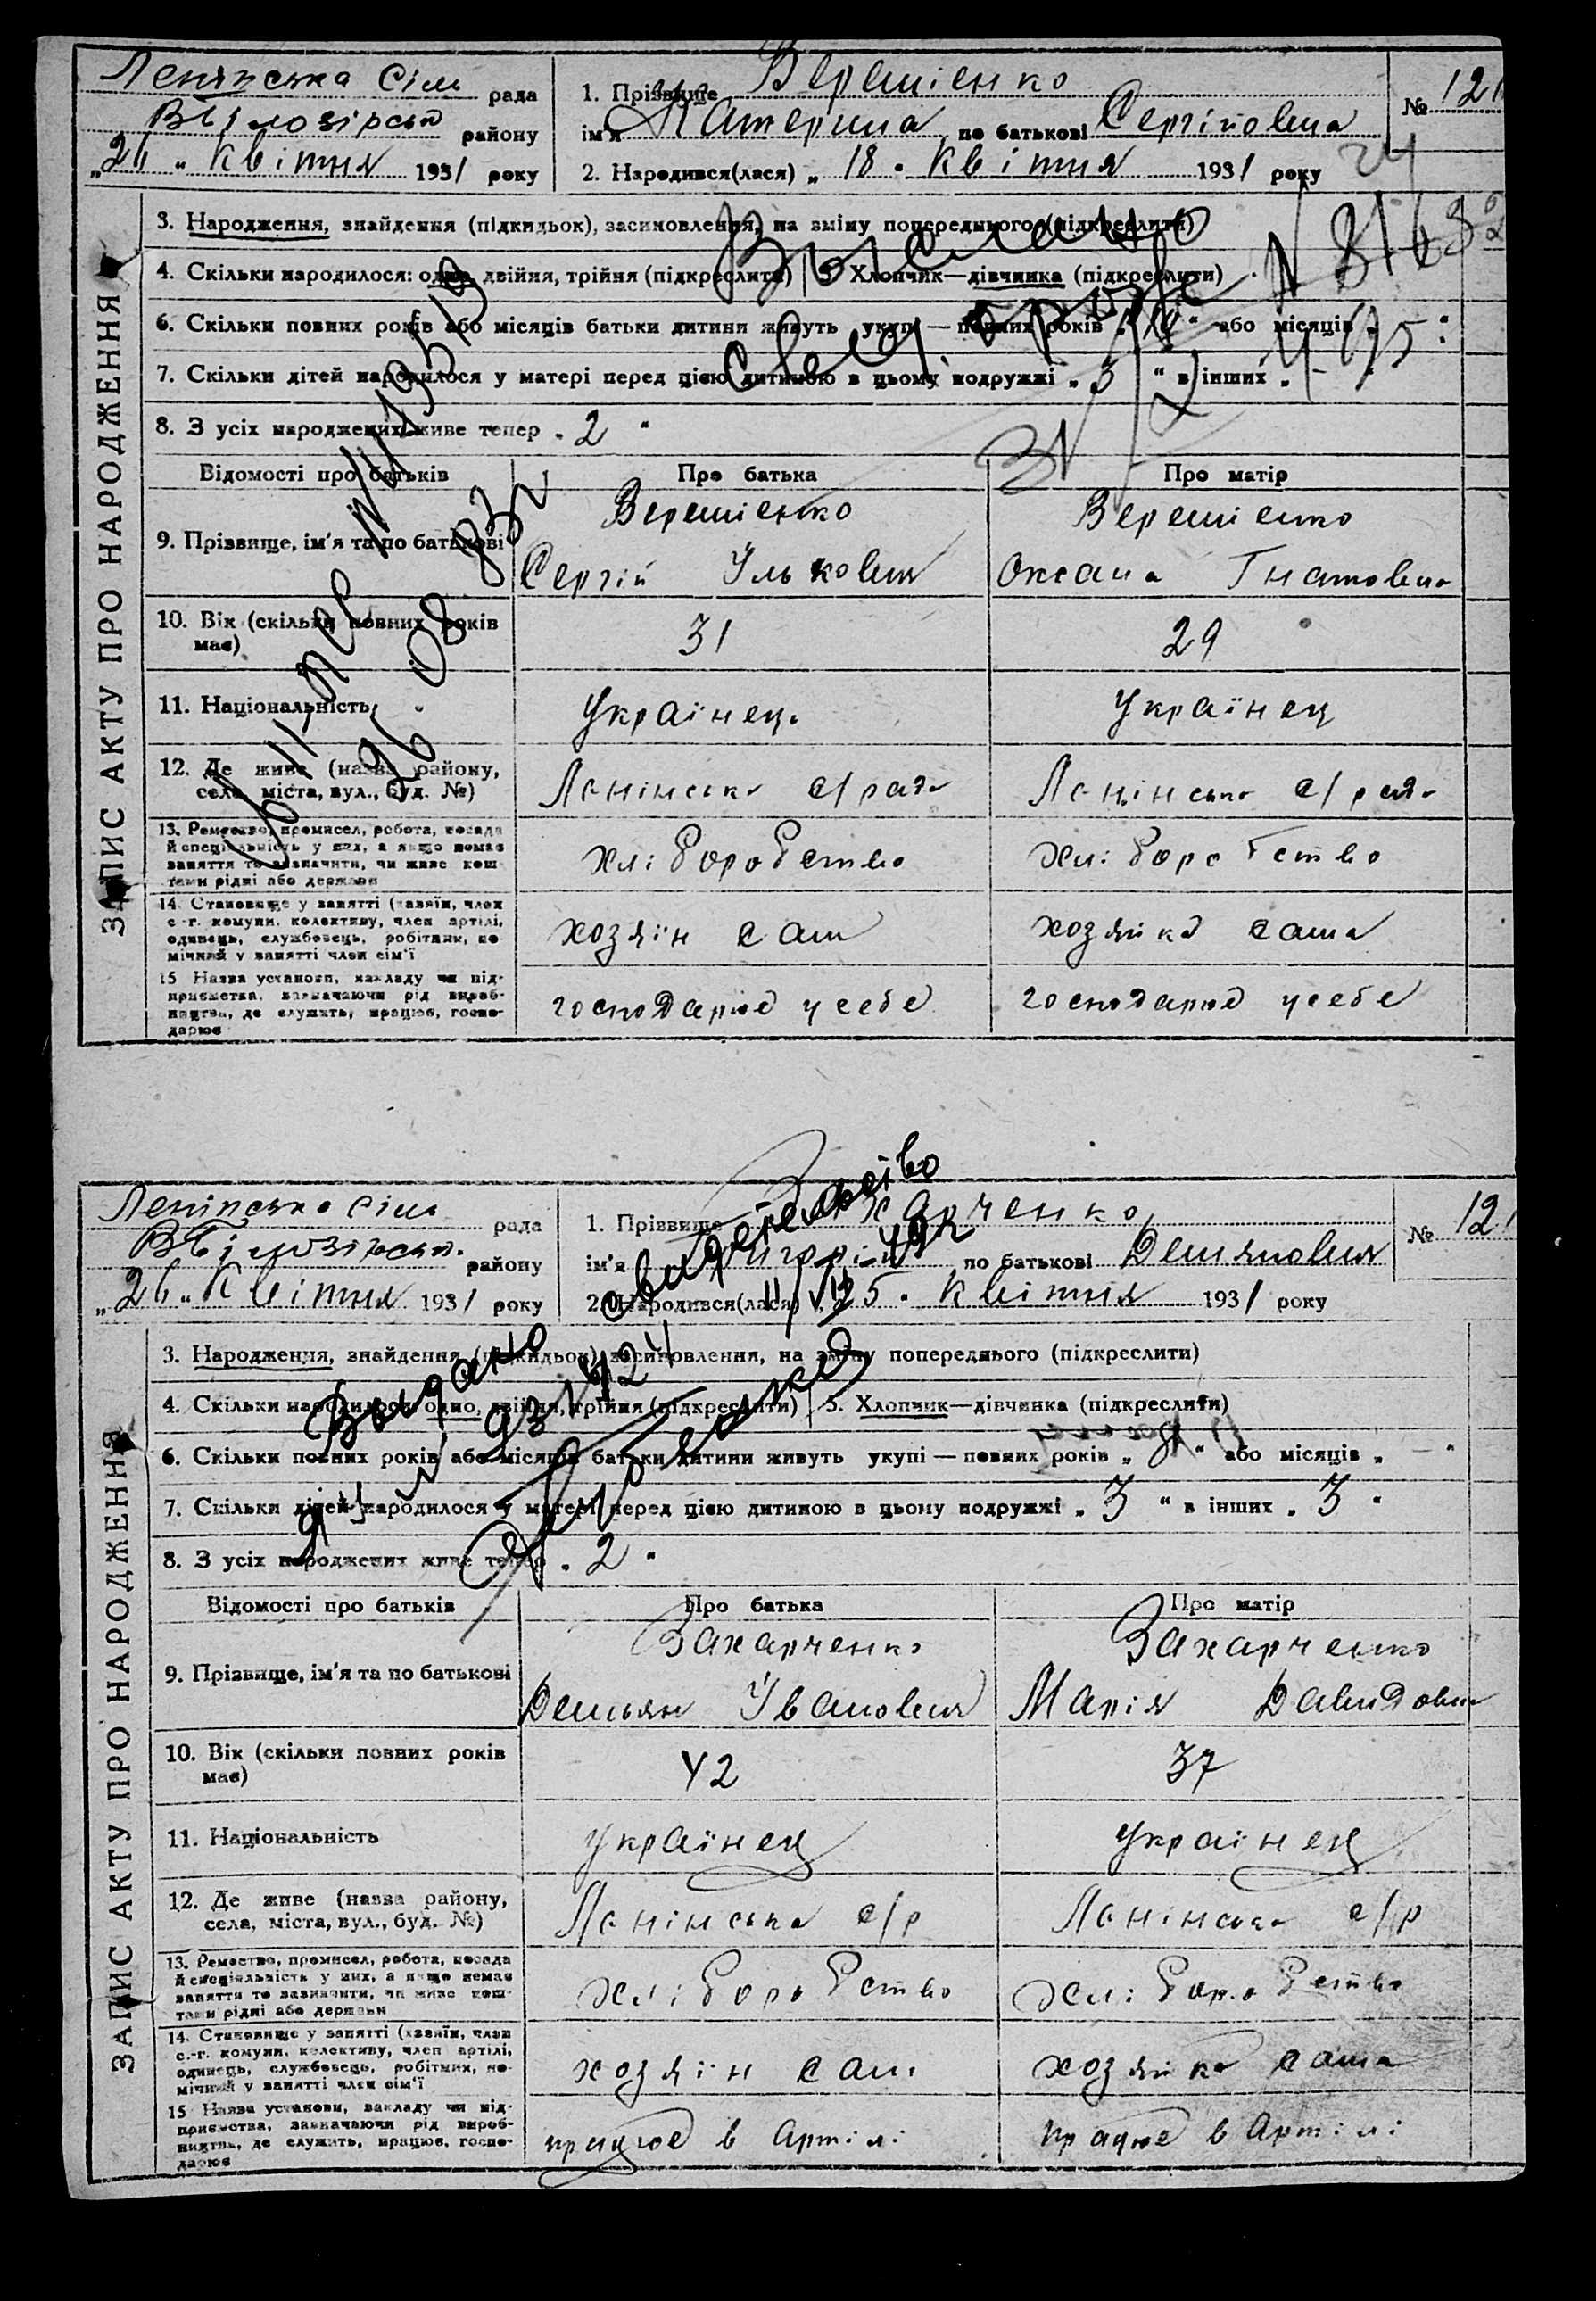 Ленінська Сіль рада
району
„26„ Квітня 1931 року
1. Прізвище
ім'я Катерина по батькові Сергіновна
2. Народився(лася) „ 18 . Квітня 1931 року
№ 121
24
ЗАПИС АКТУ ПРО НАРОДЖЕННЯ
3. Народження, знайдення (підкидьок), засиновлення, на зміну попереднього (підкреслити)
4. Скільки народилося: одно, двійня, трійня (підкреслити) 5. Хлопчик—дівчинка (підкреслити)
6. Скільки повних років або місяців батьки дитини живуть укупі — повних років „ “ або місяців „ “
7. Скільки дітей народилося у матері перед цією дитиною в цьому подружжі „ 3 “ в інших „ – “
8. З усіх народжених живе тепер „ 2 “
Відомості про батьків Про батька Про матір
9. Прізвище, ім'я та по батькові
Сергій Улькович Оксана Гнатовна
10. Вік (скільки повних років має) 31 29
11. Національність Українец. Українец
12. Де живе (назва району, села, міста, вул., буд. №) Ленінська с/рада Ленінська с/рада
13. Ремество, промисел, робота, посада й спеціяльність у них, а якщо немає заняття то зазначити, чи живе коштами рідні або держави хліборобство хліборобство
14. Становище у занятті (хазяїн, член с.-г. комуни, колективу, член артілі, одинець, службовець, робітник, помічний у занятті член сім'ї хозяїн сам хозяйка сама
15 Назва установи, закладу чи підприємства, зазначаючи рід виробництва, де служить, працює, господарює господарює у себе господарює у себе
Ленінська сіль рада
району
„26„ Квітня 1931 року
1. Прізвище Захарченко
ім'я по батькові Демянович
2. Народився(лася) „ 25 . Квітня 1931 року
№ 12
Выдано свидетельство
ЗАПИС АКТУ ПРО НАРОДЖЕННЯ
3. Народження, знайдення (підкидьок), засиновлення, на зміну попереднього (підкреслити)
4. Скільки народилося: одно, двійня, трійня (підкреслити) 5. Хлопчик—дівчинка (підкреслити)
6. Скільки повних років або місяців батьки дитини живуть укупі — повних років „ 8 “ або місяців „ – “
7. Скільки дітей народилося у матері перед цією дитиною в цьому подружжі „ 3 “ в інших „ 3 “
8. З усіх народжених живе тепер „ 2 “
Відомості про батьків Про батька Про матір
Захарченко Захарченко
9. Прізвище, ім'я та по батькові
Демьян Ӳванович Марія Давидовна
10. Вік (скільки повних років має) 42 37
11. Національність українец українец
12. Де живе (назва району, села, міста, вул., буд. №) Ленінська с/р Ленінська с/р
13. Ремество, промисел, робота, посада й спеціяльність у них, а якщо немає заняття то зазначити, чи живе коштами рідні або держави хліборобство хліборобство
14. Становище у занятті (хазяїн, член с.-г. комуни, колективу, член артілі, одинець, службовець, робітник, помічний у занятті член сім'ї хозяїн сам хозяйка сама
15 Назва установи, закладу чи підприємства, зазначаючи рід виробництва, де служить, працює, господарює працює в Артілі працює в Артілі